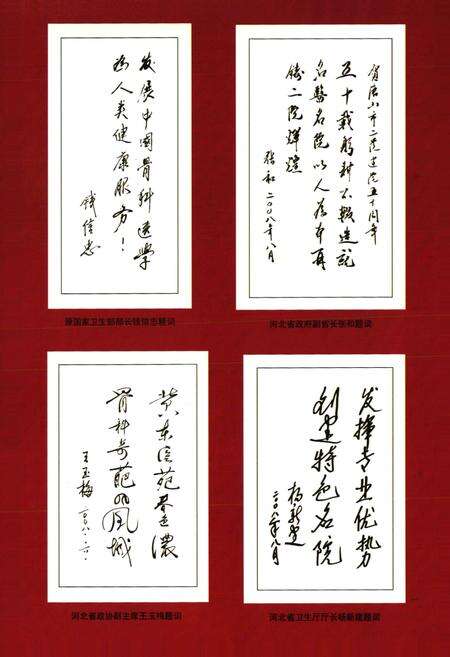 发展中国骨科医学
为人类健康服务！
钱信忠
原国家卫生部部长钱信忠题词
贺唐山市二院建院五十周年
五十载躬耕不辍造就
名医名院以人为本再
铸二院辉煌
张和 二〇〇八年八月
河北省政府副省长张和题词
冀东医苑春意浓
骨科奇葩明凤城
王玉梅
二〇〇八.六.
河北省政协副主席王玉梅题词
发挥专业优势
创建特色名院
杨新建
二〇〇八年八月
河北省卫生厅厅长杨新建题词